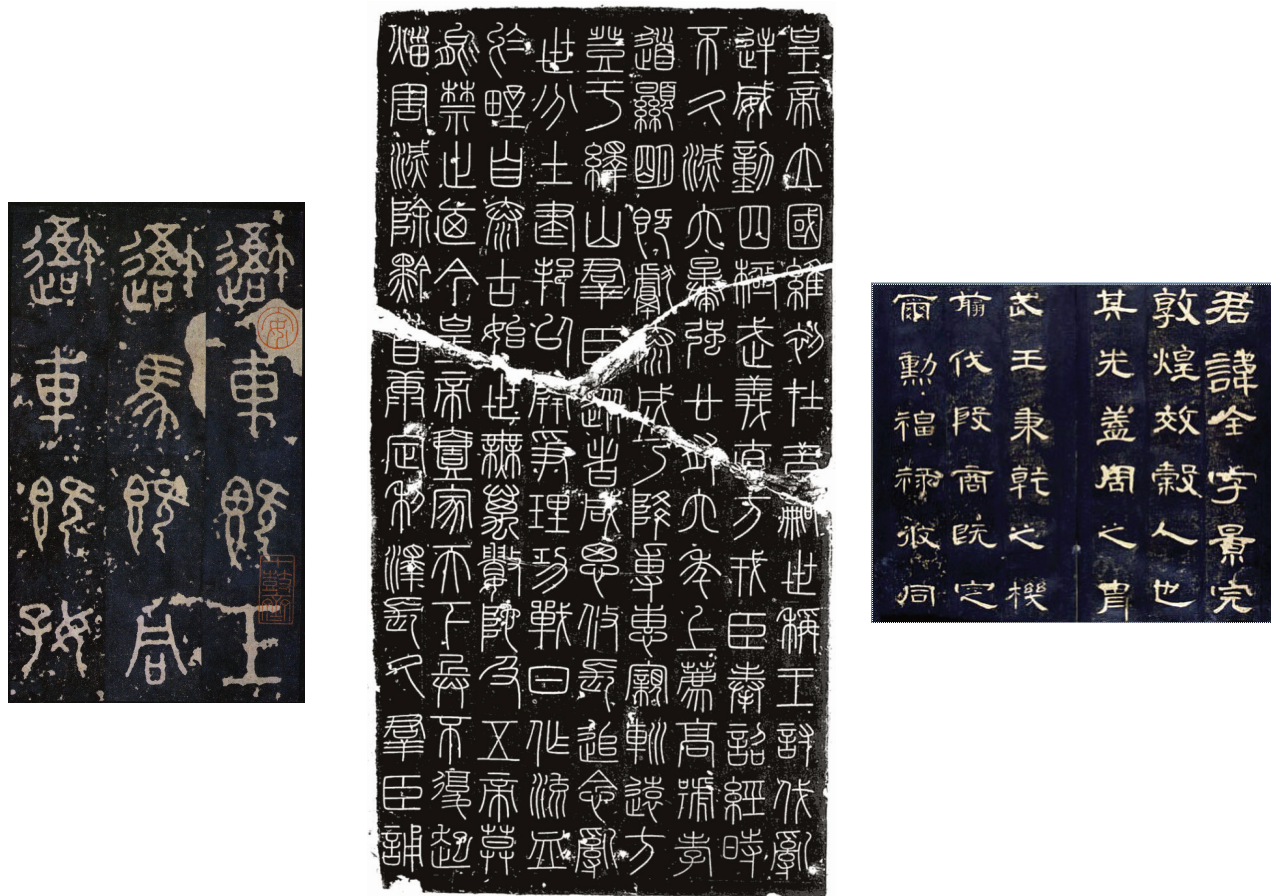 吾車既工
吾馬既同
吾車既好
皇帝立國維初在昔嗣世稱王討伐亂
逆威動四極武義直方戎臣奉詔經時
不久滅六暴強廿有六年上薦高號孝
道顯明既獻泰成乃降專惠親巡遠方
登于繹山群臣從者咸思攸長追念亂
世分土建邦以開爭理功戰日作流血
於野自泰古始世無萬數陀及五帝莫
能禁止迺今皇帝壹家天下兵不復起
災害滅除黔首康定利澤長久群臣誦
君諱全字景完
敦煌效穀人也
其先蓋周之胄
武王秉乾之機
翦伐殷商既定
爾勳福祿攸同